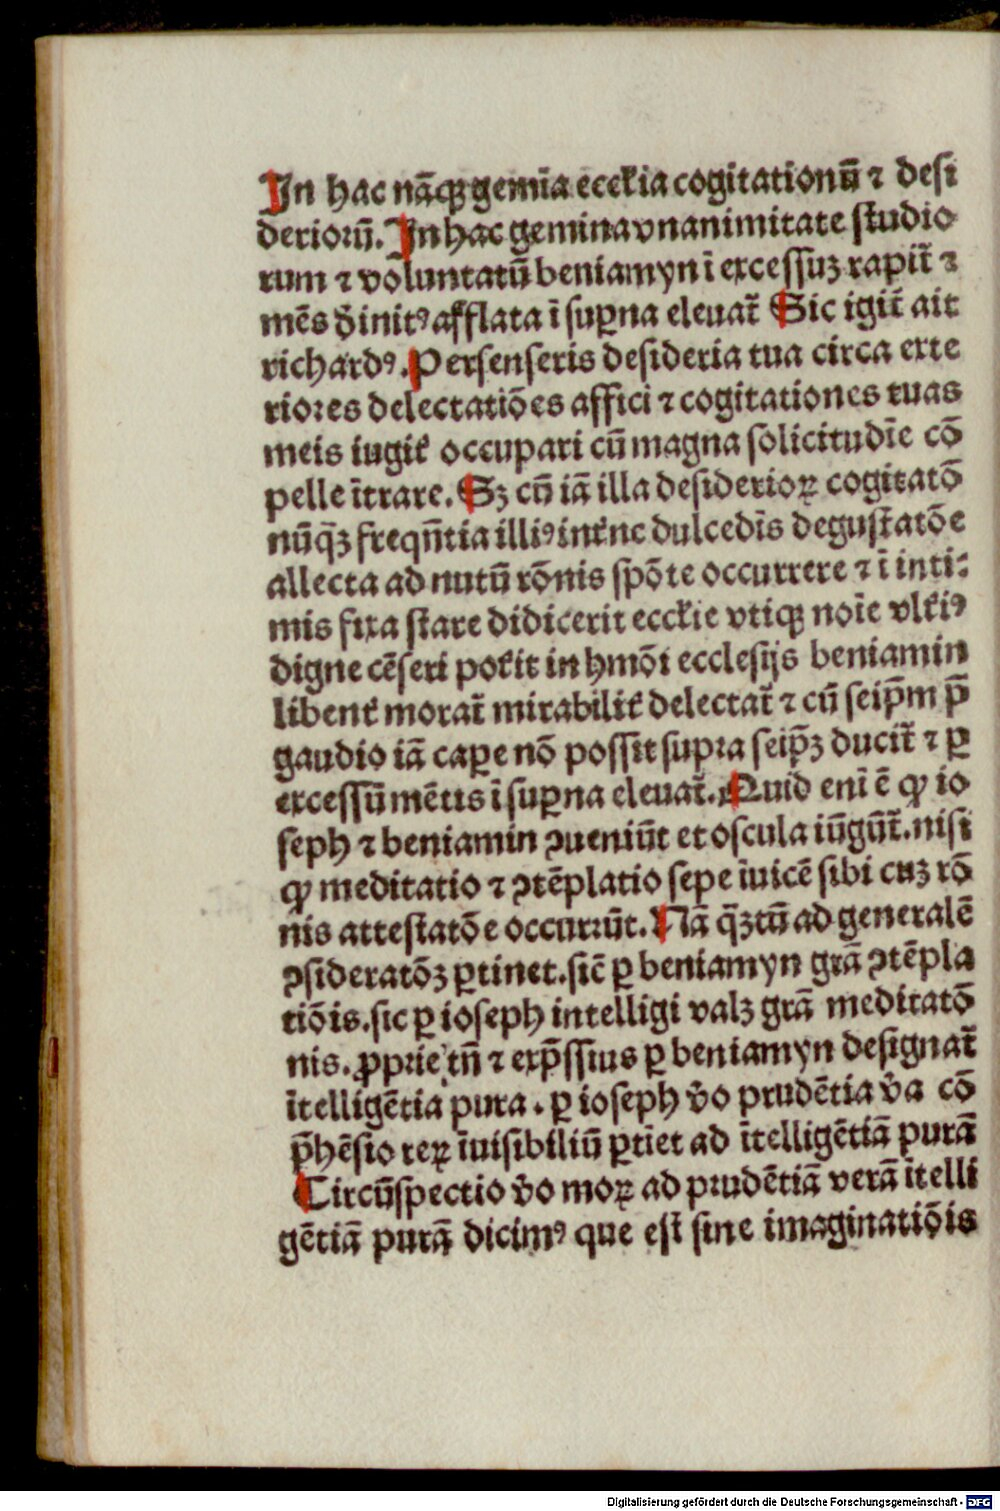 In hac nāqꝫ gemīa eccĺia cogitationū ⁊ desi
derioꝝū. In hac gemina vnanimitate studio
rum ⁊ voluntatū beniamyn ī excessuꝫ rapit̄ ⁊
mēs d̄init⁹ afflata ī suꝑna eleuat̄ Sic igit̄ ait
richard⁹. Persenseris desideria tua circa exte
riores delectatiōes affici ⁊ cogitationes tuas
meis iugit̄ occupari cū magna solicitudīe cō
pelle ītrare. Sꝫ cū iā illa desiderioꝝ cogitatō
nūqꝫ freqn̄tia illi⁹ int̄ne dulcedīs degustatōe
allecta ad nutū rōnis spōte occurrere ⁊ ī inti-
mis fixa stare didicerit eccĺie vtiqꝫ noīe vlt̄i⁹
digne cēseri pot̄it in hmōi ecclesijs beniamin
libent̄ morat̄ mirabilit̄ delectat̄ ⁊ cū seip̄m p̄
gaudio iā caꝑe nō possit supra seip̄ꝫ ducit̄ ⁊ ꝑ
excessū mētis ī suꝑna eleuat̄. Quid eni ē ꝙ io
seph ⁊ beniamin ꝯueniūt et oscula iūgūt. nisi
ꝙ meditatio ⁊ ꝯtēplatio sepe īuicē sibi cuꝫ rō
nis attestatōe occurrūt. Nā qꝫtū ad generalē
ꝯsideratōꝫ ꝑtinet. sic̄ ꝑ beniamyn grā ꝯtēpla
tiōis. sic ꝑ ioseph intelligi valꝫ grā meditatō
nis. ꝓprie tn̄ ⁊ exp̄ssius ꝑ beniamyn designat̄
ītelligētia pura. ꝑ ioseph v̄o prudētia v̄a cō
p̄hēsio reꝝ īuisibiliū ꝑtīet ad ītelligētiā purā
Circūspectio v̄o moꝝ ad prudētiā verā ītelli
gētiā purā dicim⁹ que est sine imaginatiōis
Digitalisierung gefördert durch die Deutsche Forschungsgemeinschaft - DFG